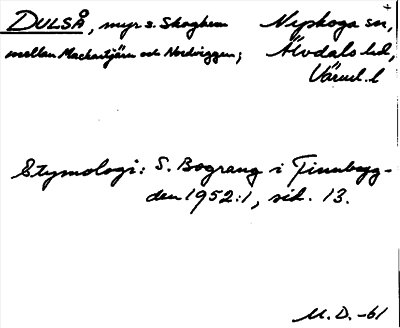 DULSÅ, myr s. Skoghem Nyskoga sn,
mellan Mackartjärn och Nordviggen; Älvdals hd,
Värml. l
Etymologi: S. Bograng i Finnbygden
1952:1, sid. 13.
M. D. -61